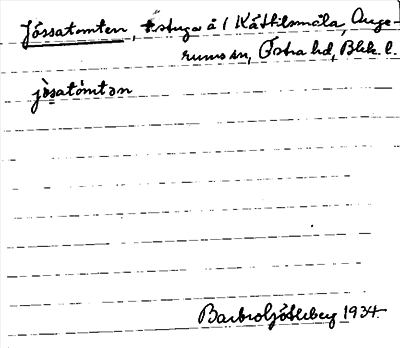 Jössatomten, stuga å 1 Kättilsmåla, Auge-
rums sn, Östra hd, Blek. l.
jösatòmtən
Barbro Söderberg 1934